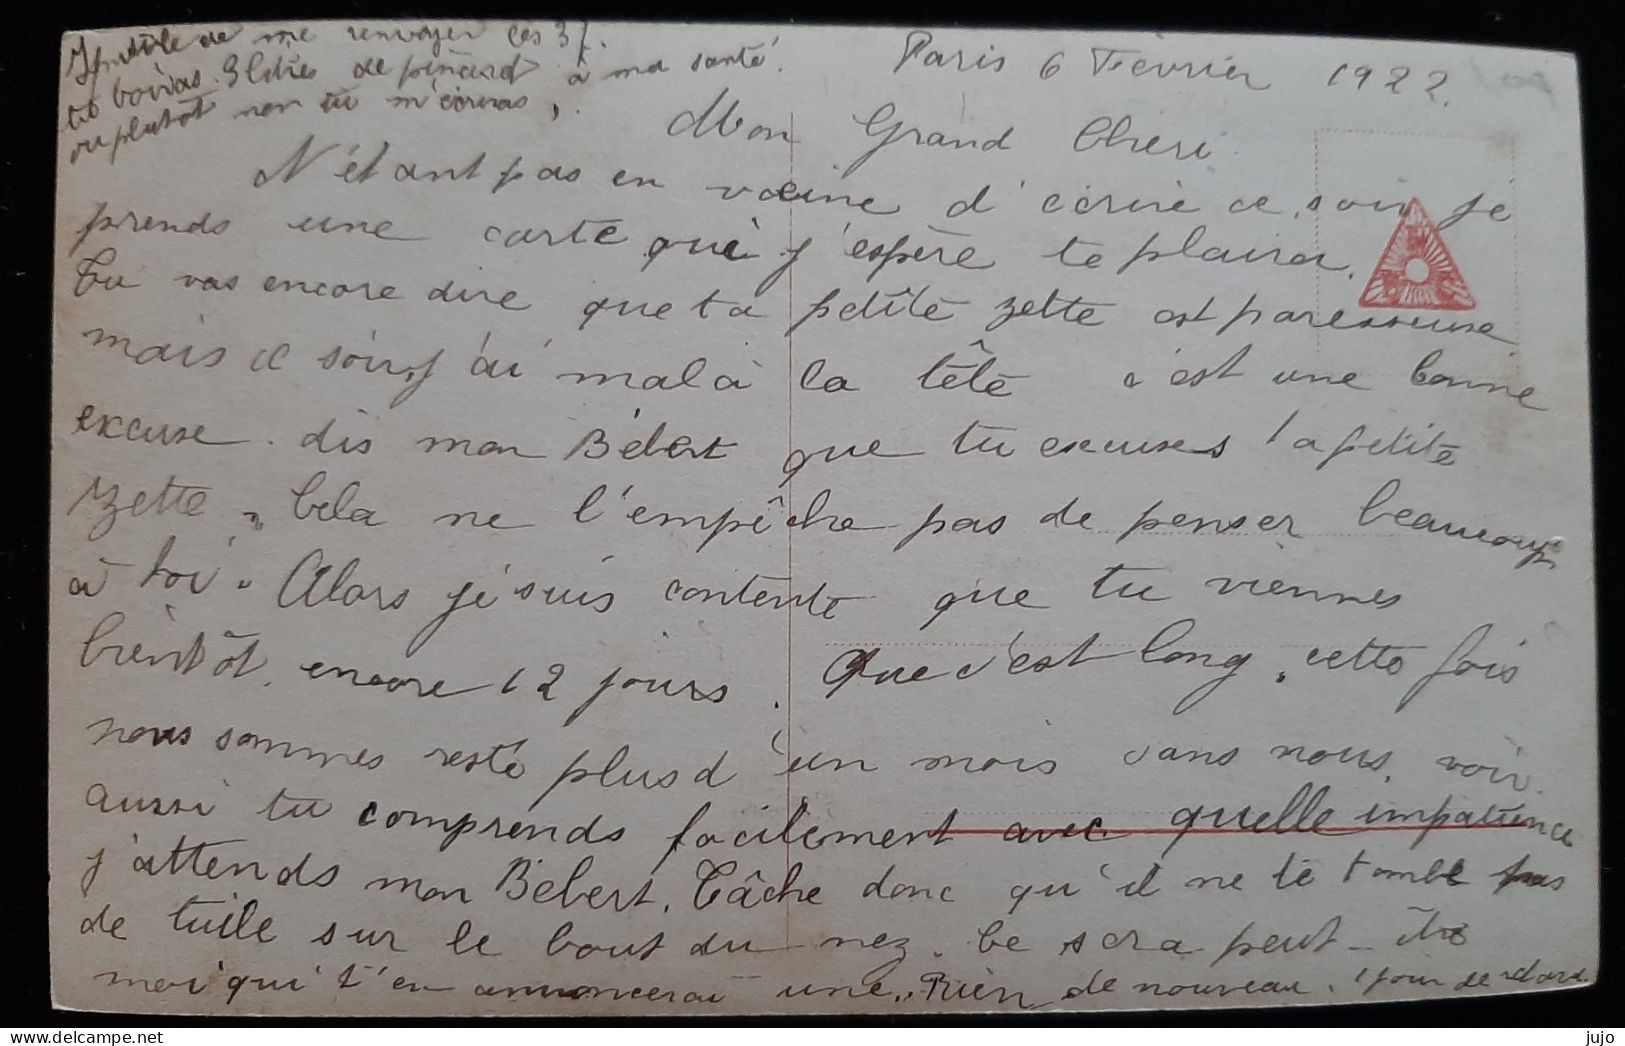 Inutile de me renvoyer ces 3f.
tu boiras 3 litres de pinard à ma santé.
ou plutôt non tu m'écriras,
Paris 6 Février 1922.
Mon Grand Cheri
N'étant pas en veine d'écrire ce soir je
prends une carte qui j'espère te plaira.
Tu vas encore dire que ta petite Zette est paresseuse
mais ce soir j'ai mal à la tête c'est une bonne
excuse. dis mon Bébert que tu excuses la petite
Zette. Cela ne l'empêche pas de penser beaucoup
à toi. Alors je suis contente que tu viennes
bientôt, encore 12 jours. Que c'est long, cette fois
nous sommes resté plus d'un mois sans nous voir
aussi tu comprends facilement avec quelle impatience
j'attends mon Bébert. Tâche donc qu'il ne te tombe pas
de tuile sur le bout du nez. Ce sera peut-être
moi qui t'en annoncerai une.. Rien de nouveau. 1 jour de retard.
jujo
www.delcampe.net